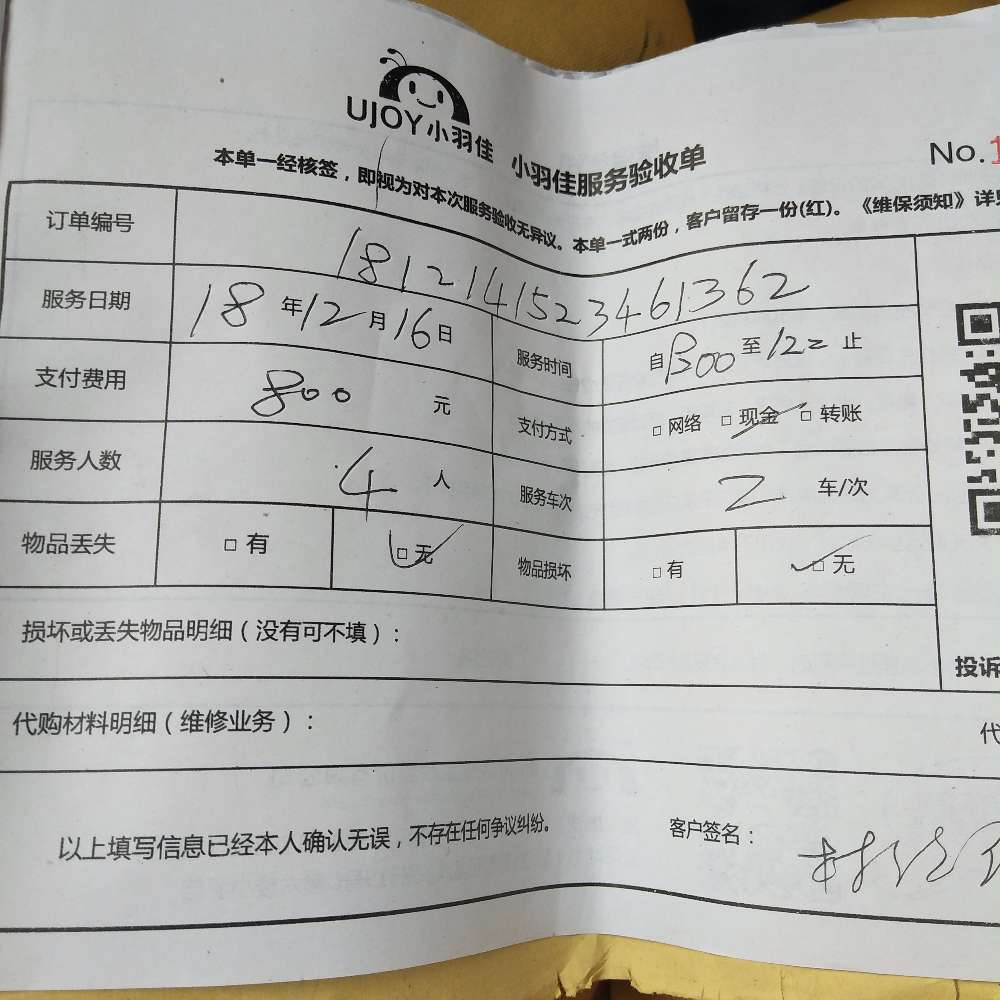 UJOY小羽佳 小羽佳服务验收单 No.1
本单一经核签，即视为对本次服务验收无异议。本单一式两份，客户留存一份(红)。《维保须知》详见
订单编号 1812141523461362
服务日期 18年12月16日 服务时间 自 至 止
支付费用 800 元 支付方式 □网络 □现金 □转账
服务人数 4 人 服务车次 2 车/次
物品丢失 □有 □无 物品损坏 □有 □无
损坏或丢失物品明细（没有可不填）：
投诉
代购材料明细（维修业务）：
代
以上填写信息已经本人确认无误，不存在任何争议纠纷。 客户签名：